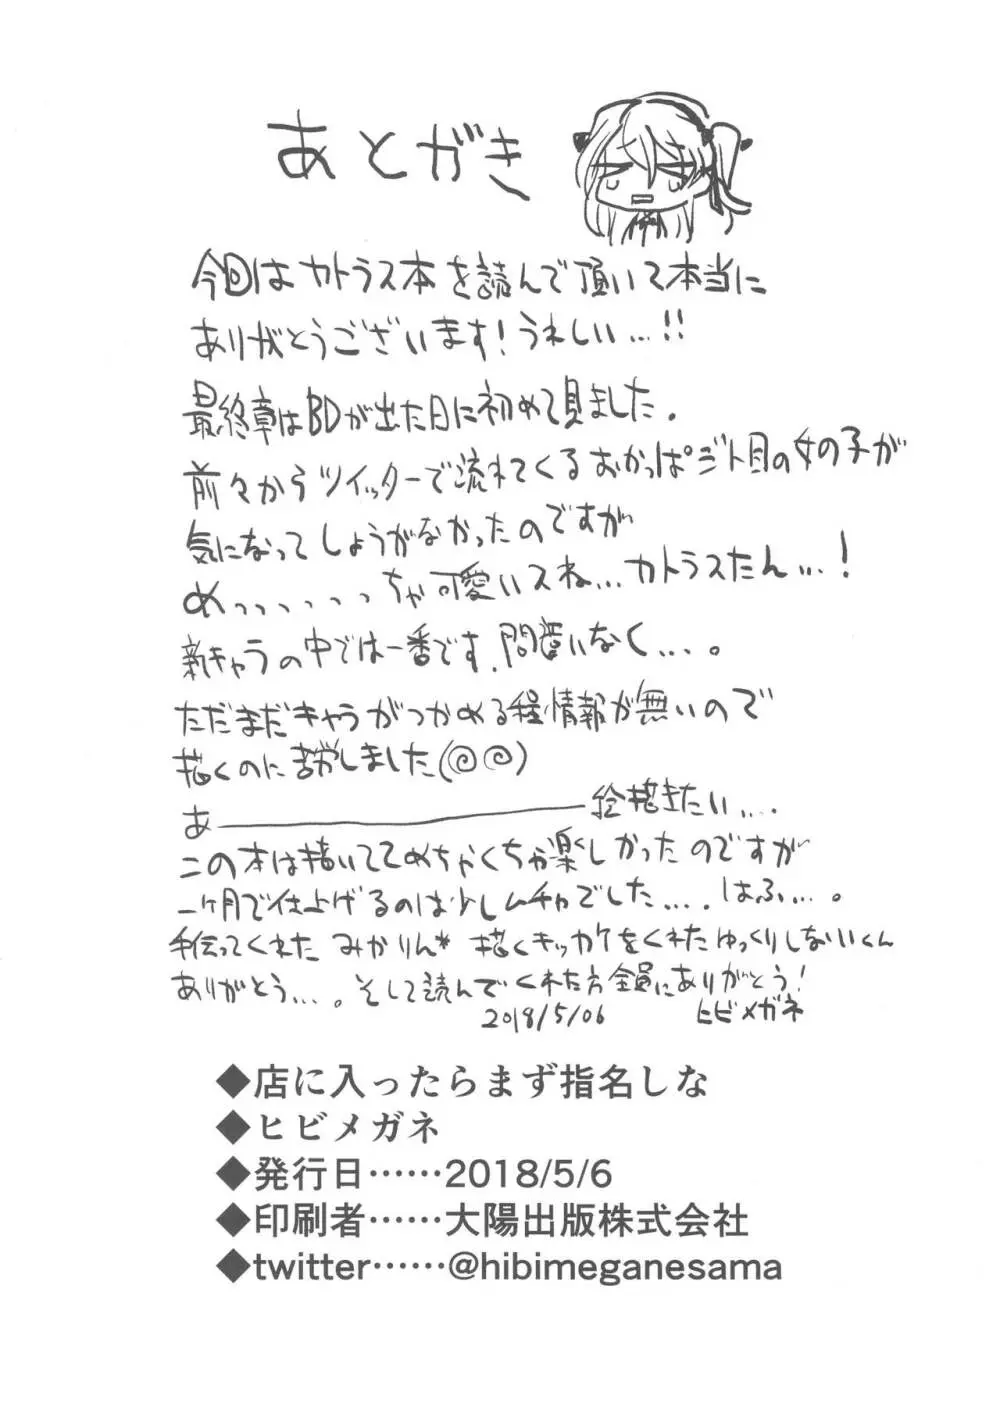 あとがき
今回はカトラス本を読んで頂いて本当に
ありがとうございます!うれしい...!!
最終章はBDが出た日に初めて見ました.
前々からツイッターで流れてくるおかっぱジト目の女の子が
気になってしょうがなかったのですが
めっっっっっっちゃ可愛いスね...カトラスたん...!
新キャラの中では一番です.間違いなく....。
ただまだキャラがつかめる程情報が無いので
描くのに苦労しました(@@)
あ――――――――絵描きたい....
この本は描いててめちゃくちゃ楽しかったのですが
一ヶ月で仕上げるのは少しムチャでした.... はふ...。
手伝ってくれた みかりん* 描くキッカケをくれたゆっくりしないくん
ありがとう...。そして読んでくれた方全員にありがとう!
2018/5/06 ヒビメガネ
◆店に入ったらまず指名しな
◆ヒビメガネ
◆発行日……2018/5/6
◆印刷者……大陽出版株式会社
◆twitter……@hibimeganesama